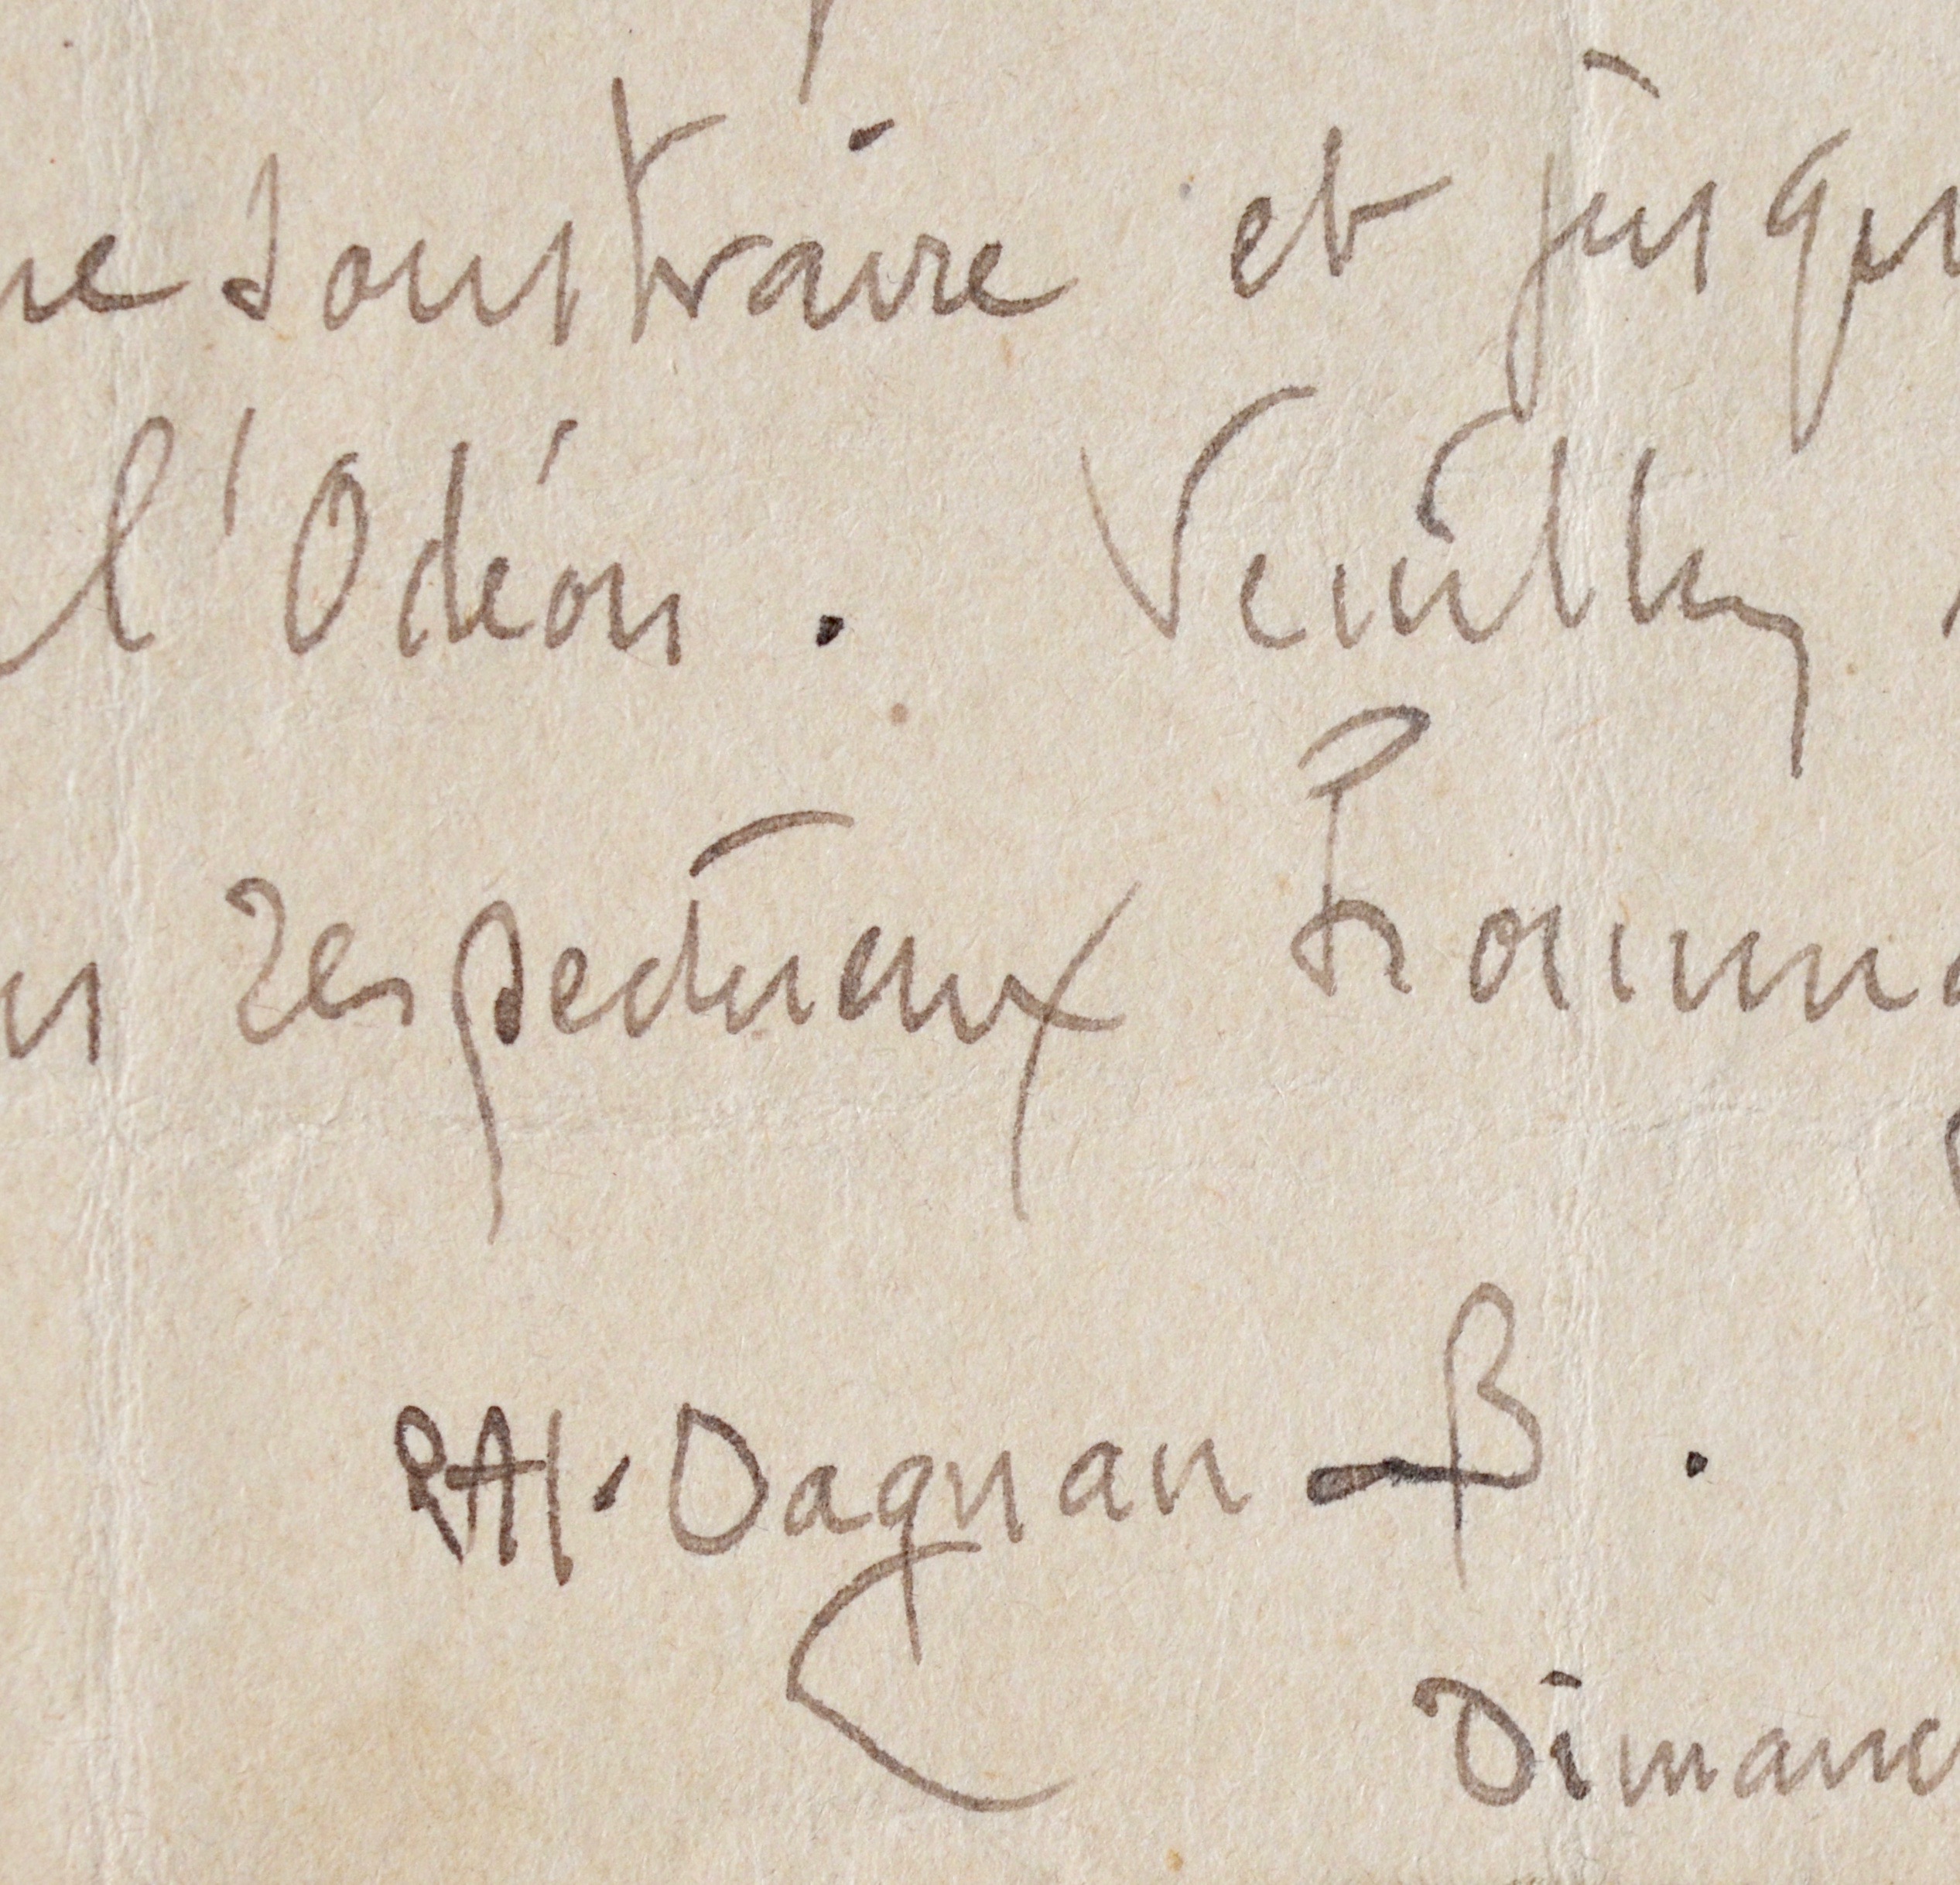 soustraire et jusqu
l'Odéon. Veuillez
respectueux homma
PAJ. Dagnan-B.
Dimanc